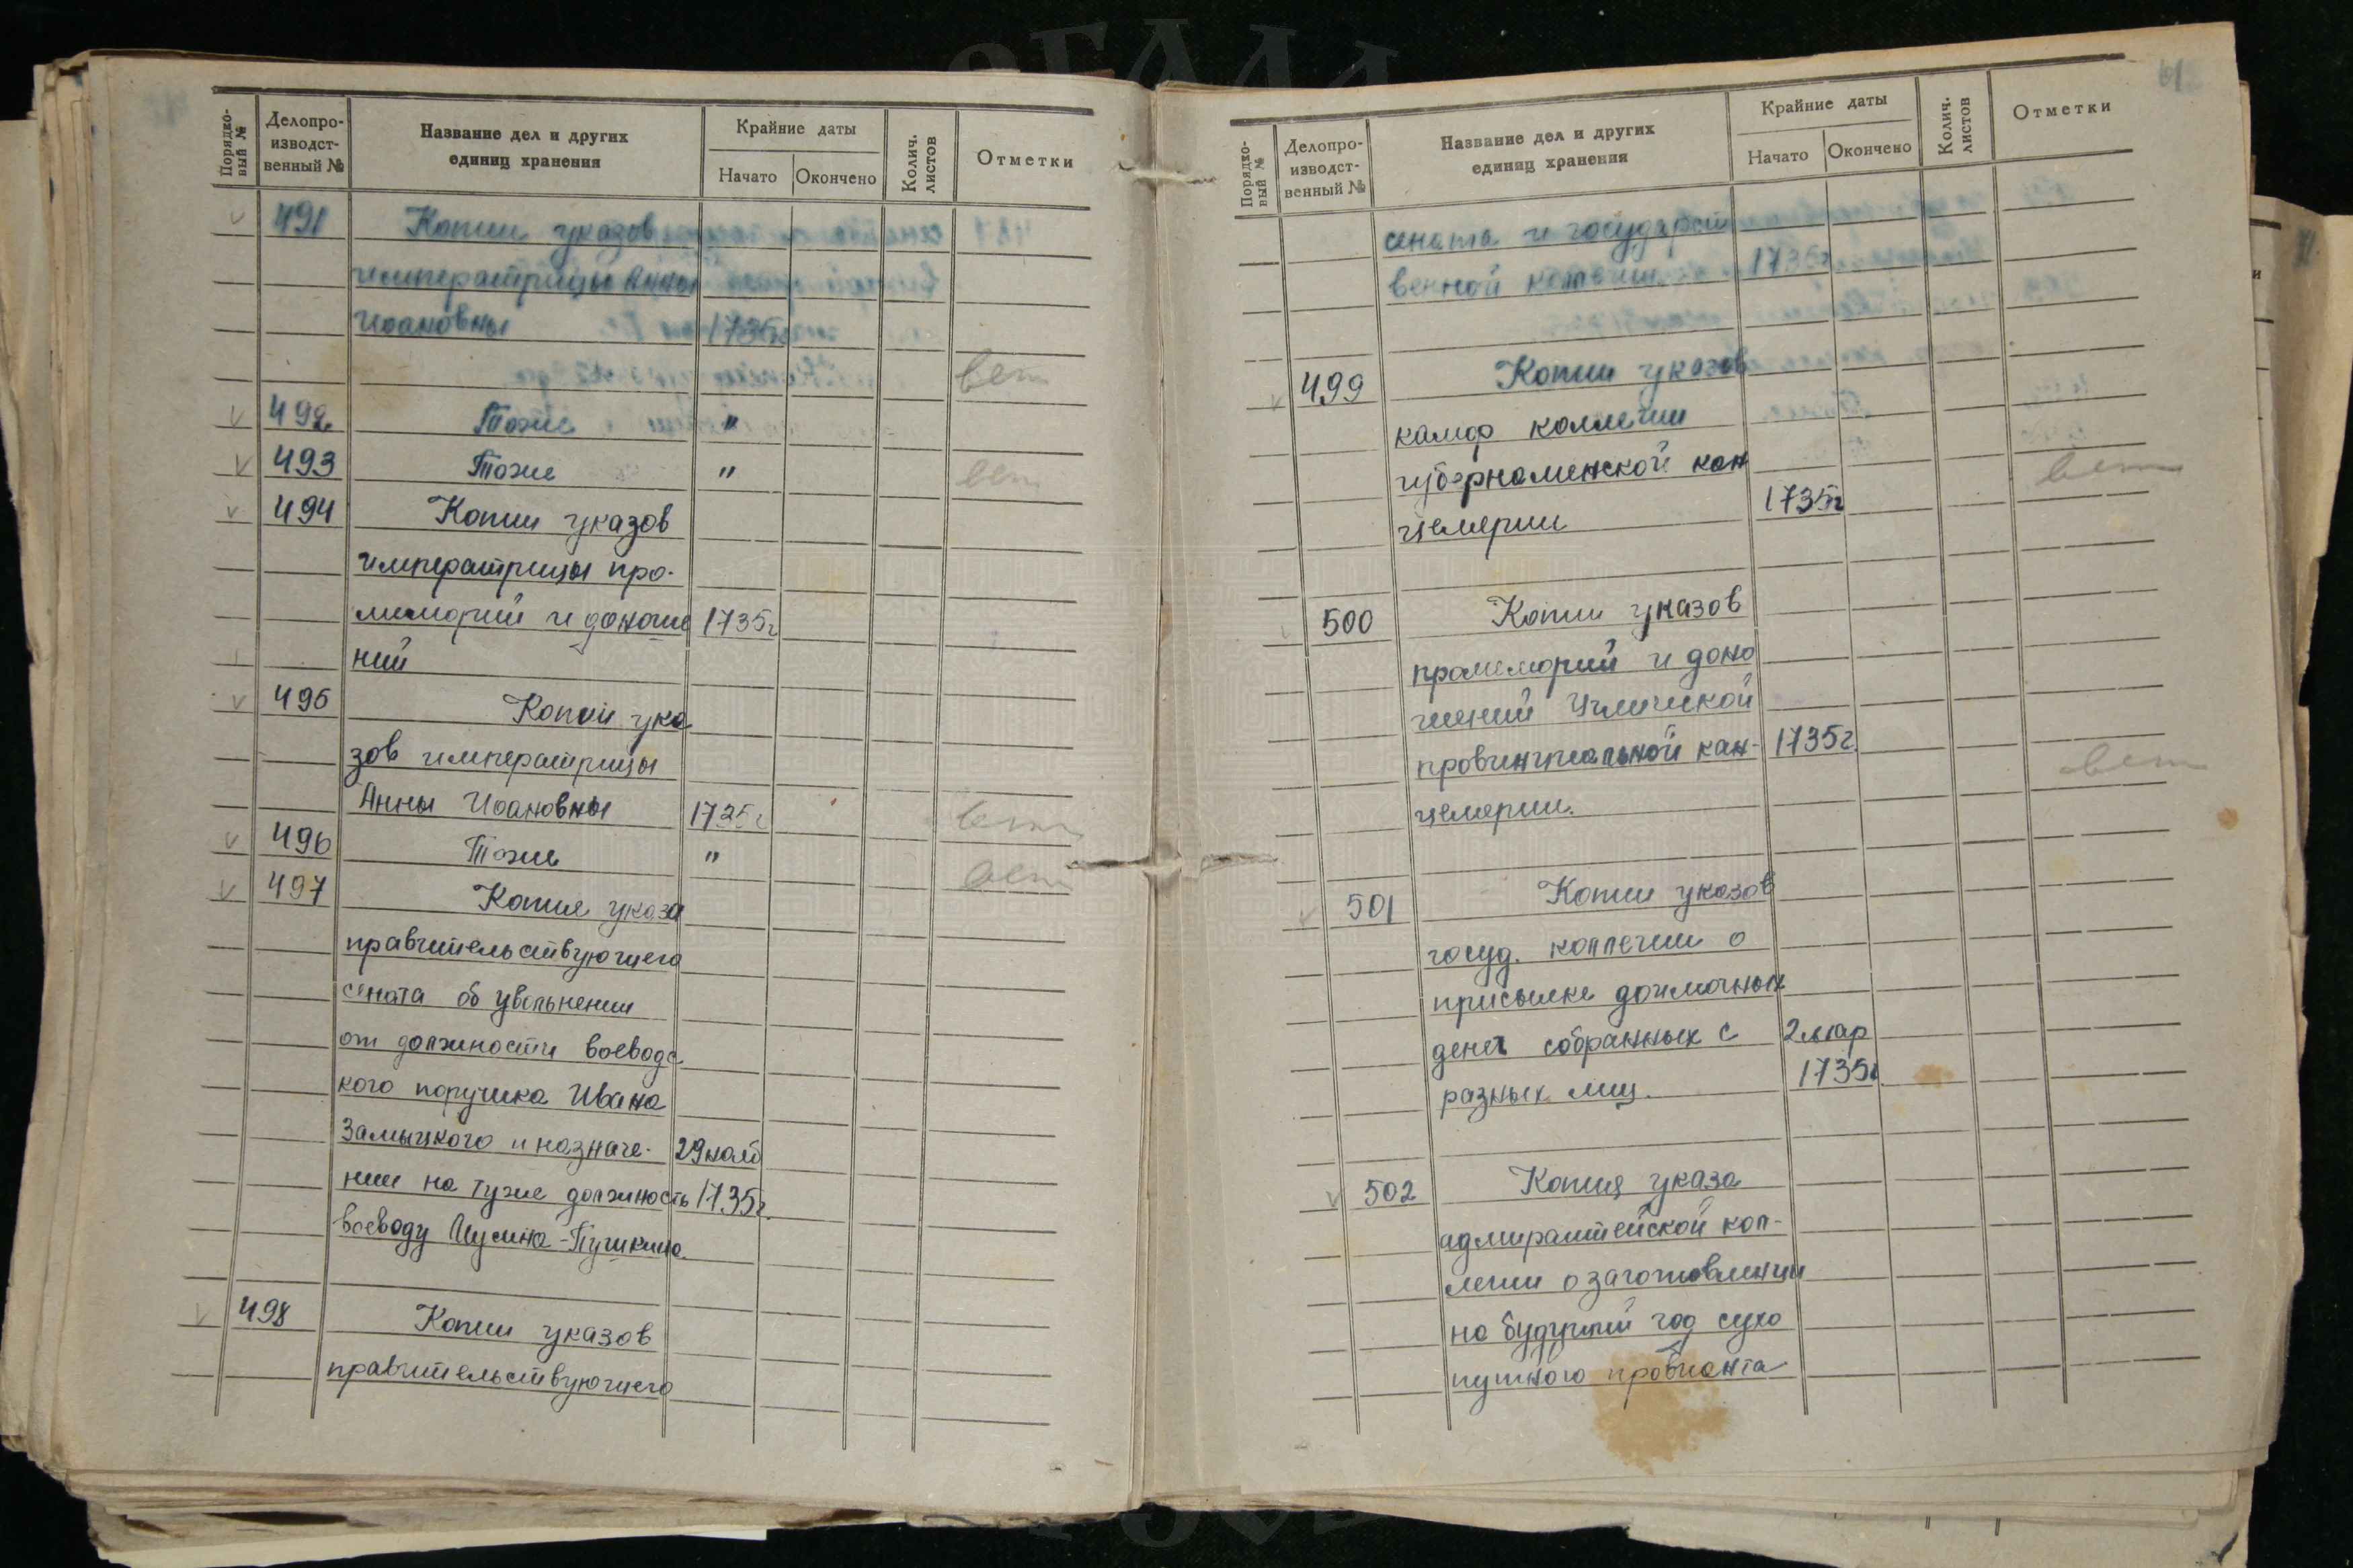 Порядко-
вый №
Делопро-
изводст-
венный №
Название дел и других
единиц хранения
Крайние даты
Начато
Окончено
Колич.
листов
Отметки
491 Копии указов
императрицы Анны
Иоановны 1735г
вет
492 Тоже "
493 Тоже " вет
494 Копии указов
императрицы про-
меморий и доноше 1735г
ний
495 Копии ука
зов императрицы
Анны Иоановны 1735г вет
496 Тоже " вет
497 Копия указа
правительствующего
сената об увольнении
от должности воеводс
кого поручика Ивана
Замыцкого и назначе- 29 нояб
нии на туже должность 1735г.
воеводу Мусина-Пушкина
498 Копии указов
правительствующего
Порядко-
вый №
Делопро-
изводст-
венный №
Название дел и других
единиц хранения
Крайние даты
Начато
Окончено
Колич.
листов
Отметки
сената и государст
венной 1735г
499 Копии указов
камор коллегии
губернаменской кан вет
целерии 1735г
500 Копии указов
промеморий и доно
шений Угличской
провинциальной кан- 1735г. вет
целерии.
501 Копии указов
госуд. коллегии о
присылке доимочных
денег собранных с 2 мар
разных лиц. 1735г
502 Копия указа
адмиралтейской кол-
легии о заготовлении
на будущий год сухо
путного провианта